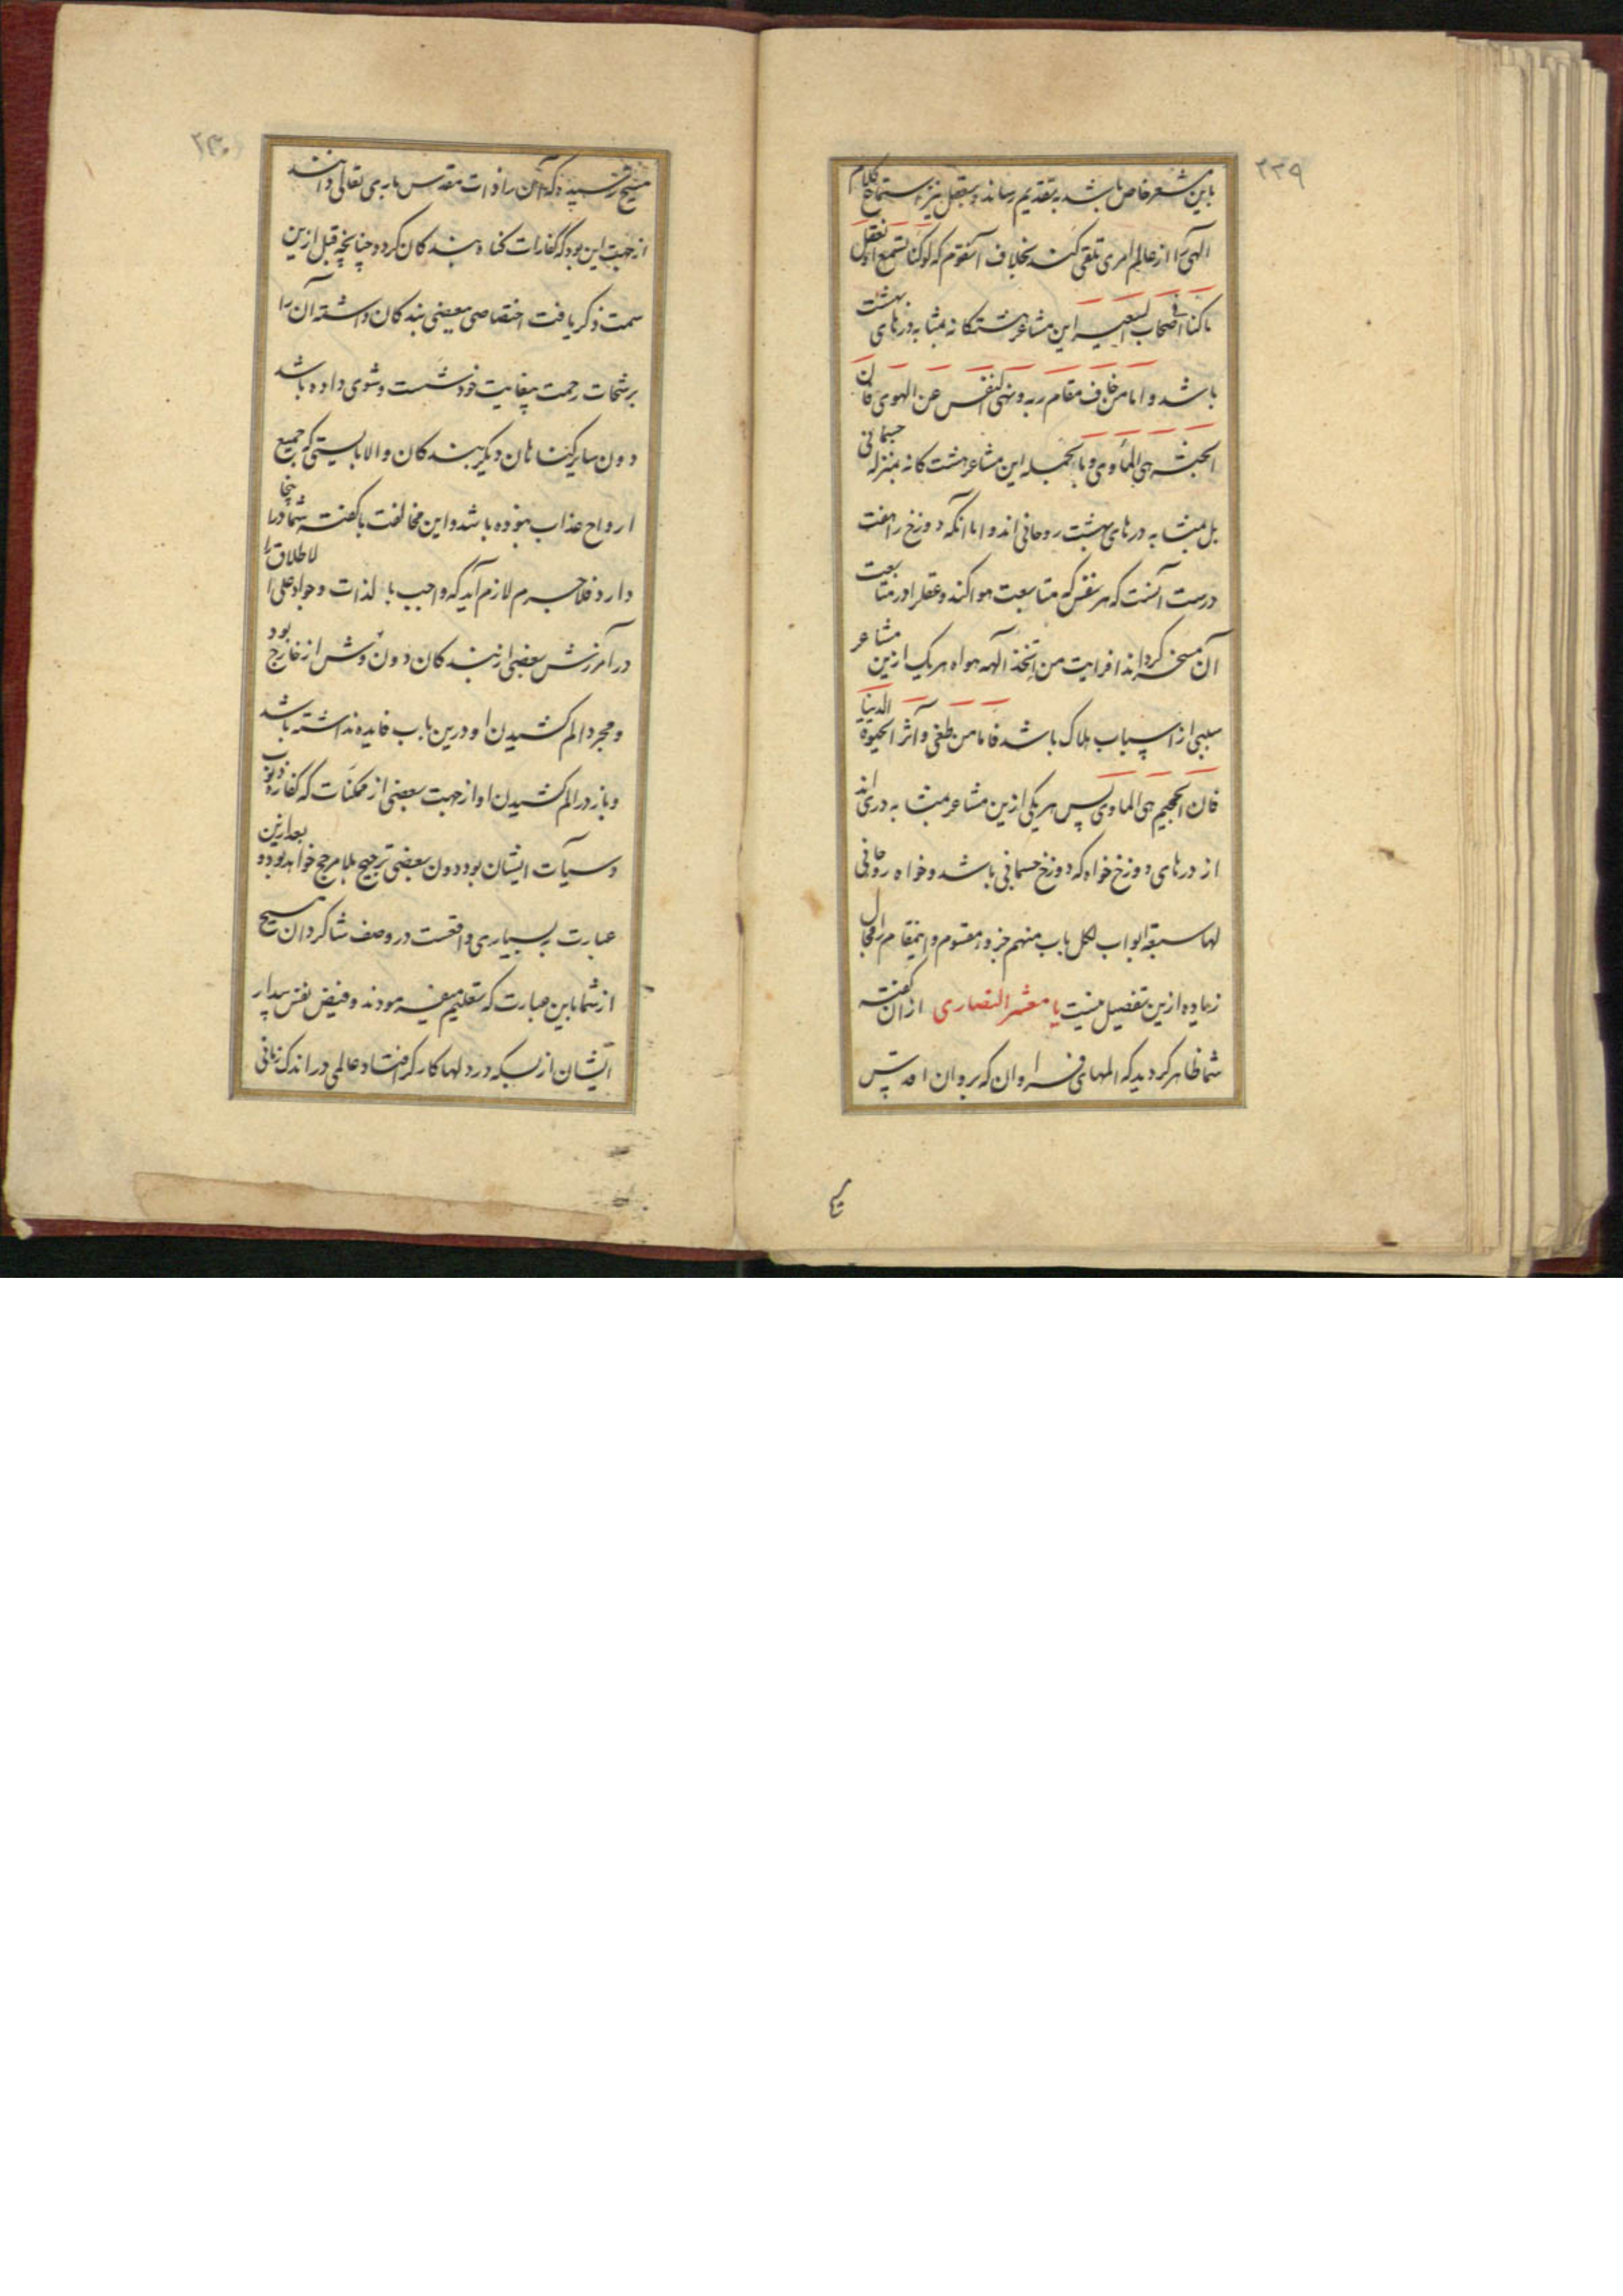 ۲۲۹
باین مشعر خاص باشد بتقدیم رساند و بعقل نیز استماع کلام
الهی را از عالم امری تلقی کند بخلاف آنقوم که لو کنا نسمع او نعقل
ما کنا فی اصحاب السعیر این مشاعر هشتکانه بمثابه درهای بهشت
باشد و اما من خاف مقام ربه و نهی النفس عن الهوی فان
الجنة هی الماوی و بالجمله این مشاعر هشت کانه بمنزله جسمانی
بل بمثابه درهای بهشت روحانی اند و اما آنکه دوزخ را هفت
درست آنست که هر نفس که متابعت هوا کند و عقل را در متابعت
آن مسخر کرداند افرایت من اتخذ الهه هواه هر یک ازین مشاعر
سببی از اسباب هلاک باشد فاما من طغی و آثر الحیوة الدنیا
فان الجحیم هی الماوی پس هر یکی ازین مشاعر بمثابه دری اند
از درهای دوزخ خواه که دوزخ جسمانی باشد و خواه روحانی
لها سبعة ابواب لکل باب منهم جزء مقسوم و اینمقام را مجال
زیاده ازین تفصیل نیست یا معشر النصاری از آن کفته
شما ظاهر کردید که المهای فراوان که بروان اقدس
مسیح
۲۳۰
مسیح رسیده که آن را ذات مقدس باری تعالی دانند
از جهت این بود که کفارات کناه بندکان کردد چنانچه قبل ازین
سمت ذکر یافت اختصاصی ببعضی بندکان داشته آن را
برشحات رحمت بیغایت خود شست و شوی داده باشد
دون سایر کناهان دیکر بندکان و الا بایستی که جمیع
ارواح عذاب نبوده باشد و این مخالفت با کفته شما در اینجا
دارد فلاجرم لازم آید که واجب بالذات و جواد علی الاطلاق را
در آمرزش بعضی از بندکان دون وش از خارج بود
و مجرد الم کشیدن او درین باب فایده نداشته باشد
و باز در الم کشیدن او از جهت بعضی از ممکنات که کفاره ذنوب
و سیآت ایشان بود دون بعضی ترجیح بلا مرجح خواهد بود و بعد ازین
عبارت به بسیاری واقعست در وصف شاکردان مسیح
از شما باین عبارت که تعلیم میفرمودند و فیض نفس بیدار
ایشان از بسکه در دلها کارکر افتاد عالمی در اندک زمانی